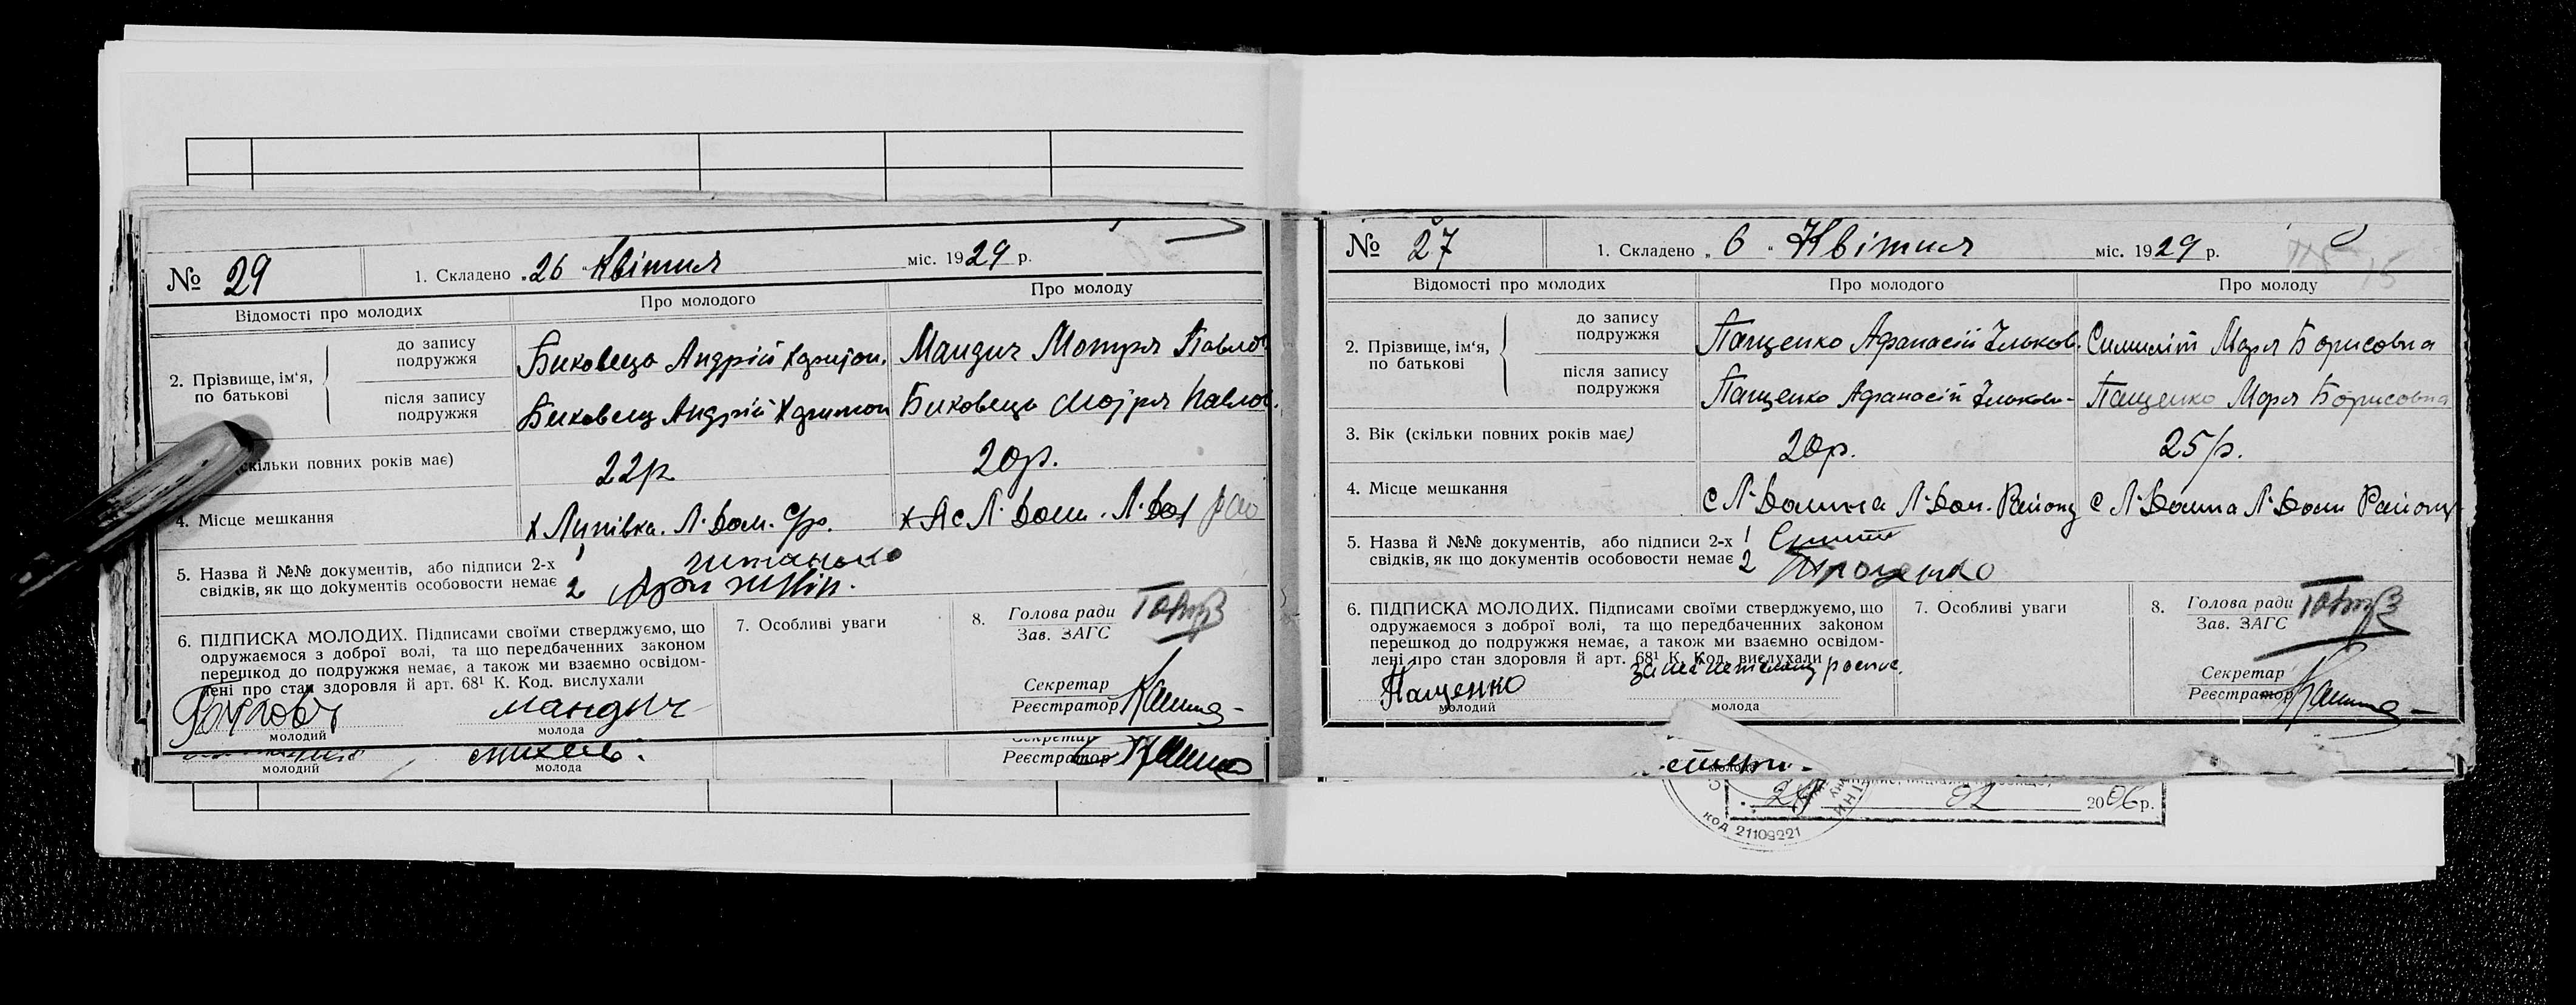 № 29
1. Складено „26" Квітня міс. 1929 р.
Відомості про молодих
Про молодого
Про молоду
2. Прізвище, ім'я, по батькові
до запису подружжя
Биковець Андрій Харитон.
Мандич Мотря Павлов
після запису подружжя
Биковец Андрій Харитон
Биковець Мотря Павлов.
скільки повних років має)
22р
20р.
4. Місце мешкання
х Липівка. Л. Дол. С/р.
Л. Дол. Л. Дол рай
5. Назва й №№ документів, або підписи 2-х
свідків, як що документів особовости немає
1
2
6. ПІДПИСКА МОЛОДИХ. Підписами своїми стверджуємо, що
одружаємося з доброї волі, та що передбаченних законом
перешкод до подружжя немає, а також ми взаємно освідом-
лені про стан здоровля й арт. 68¹ К. Код. вислухали
мандич
молодий
молода
7. Особливі уваги
8. Голова ради
Зав. ЗАГС
Секретар
Реєстратор
молодий
молода
Секретар
Реєстратор
№ 27
1. Складено „6" Квітня міс. 1929 р.
Відомості про молодих
Про молодого
Про молоду
2. Прізвище, ім'я, по батькові
до запису подружжя
Пащенко Афанасій Ільков.
Марія Борисовна
після запису подружжя
Пащенко Афанасій Ількови-
Пащенко Марія Борисовна
3. Вік (скільки повних років має)
20р.
25р.
4. Місце мешкання
с Л. Долина Л. Дол. Району
с Л. Долина Л. Доли Району
5. Назва й №№ документів, або підписи 2-х
свідків, як що документів особовости немає
1
2
6. ПІДПИСКА МОЛОДИХ. Підписами своїми стверджуємо, що
одружаємося з доброї волі, та що передбаченних законом
перешкод до подружжя немає, а також ми взаємно освідом-
лені про стан здоровля й арт. 68¹ К. Код. вислухали
Пащенко
молодий
молода
7. Особливі уваги
8. Голова ради
Зав. ЗАГС
Секретар
Реєстратор
02 2006р.
код 21109221